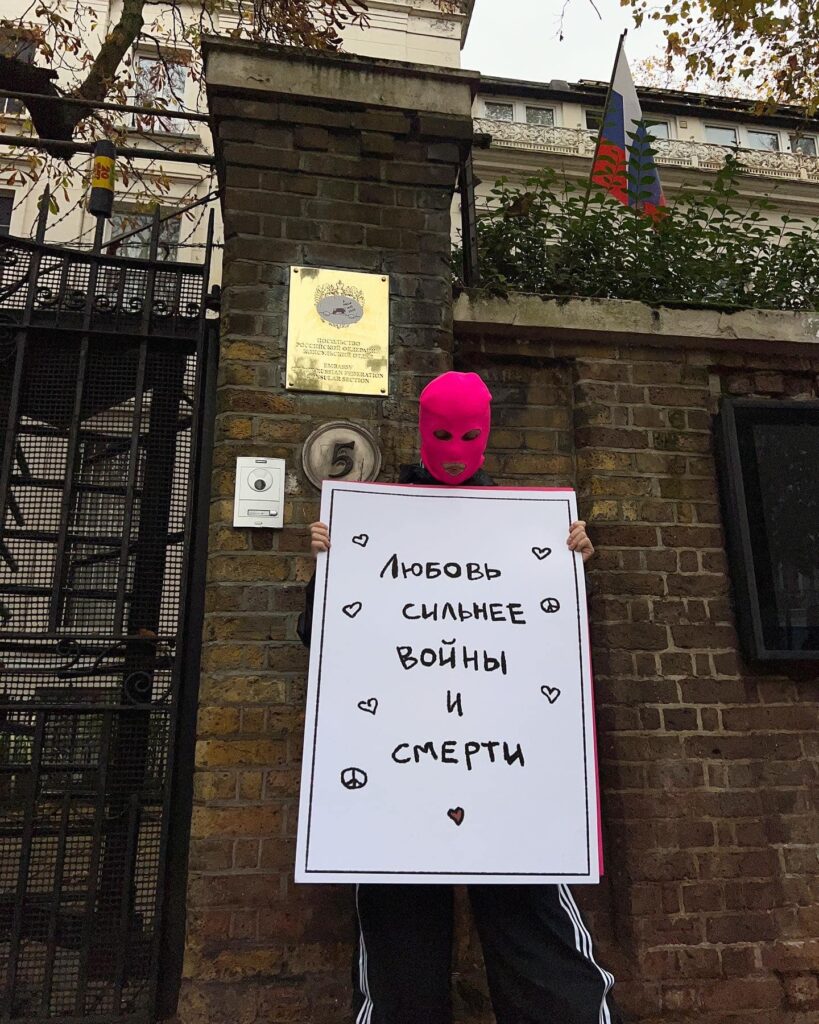 ПОСОЛЬСТВО
РОССИЙСКОЙ ФЕДЕРАЦИИ
КОНСУЛЬСКИЙ ОТДЕЛ
EMBASSY
RUSSIAN FEDERATION
SECTION
5
ЛЮБОВЬ
СИЛЬНЕЕ
ВОЙНЫ
И
СМЕРТИ